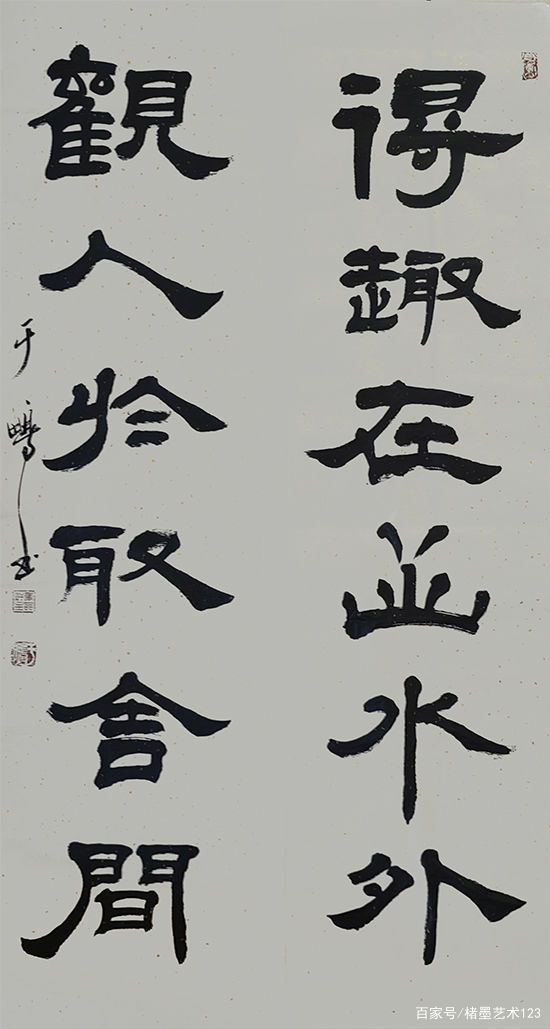 得趣在山水外
觀人於取舍間
于鵬书
百家号/楮墨艺术123